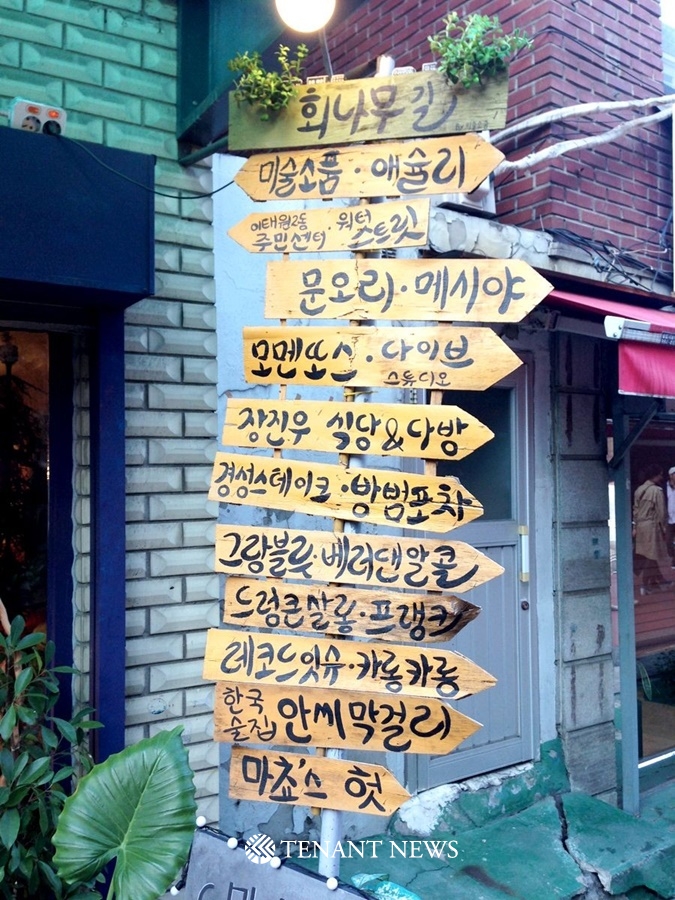 회나무길
미술소품 · 애슐리
이태원2동
주민센터 · 워터
스트릿
문오리 · 메시야
모멘또스 · 다이브
스튜디오
장진우 식당&다방
경성스테이크 · 방범포차
그랑블루 · 베러댄알콜
드렁큰살롱 · 프랭키
레코드잇슈 · 카롱카롱
한국
술집 안씨막걸리
마쵸's 헛
TENANT NEWS